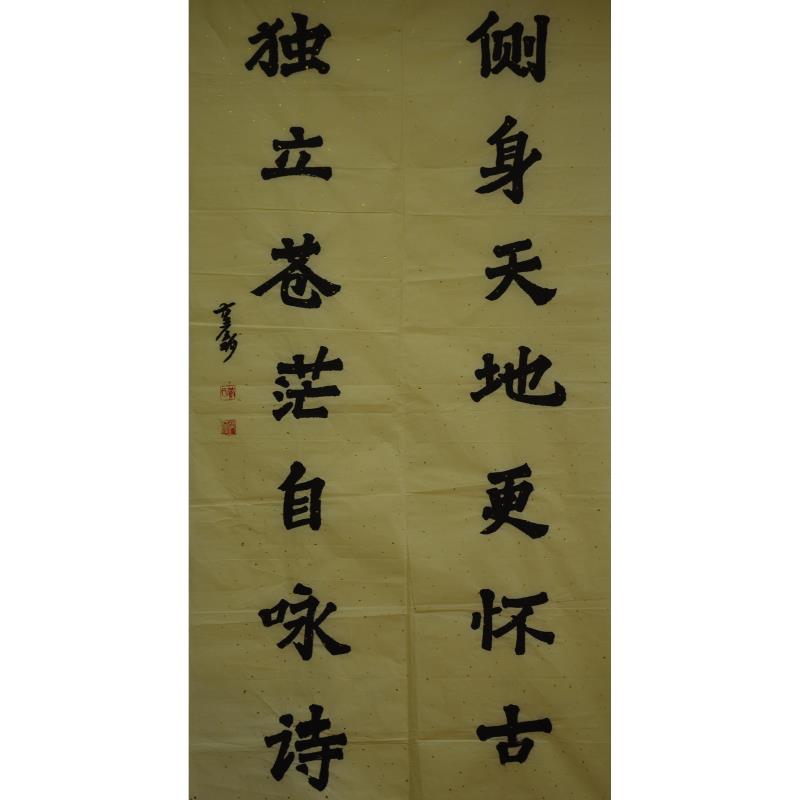 侧身天地更怀古
独立苍茫自咏诗